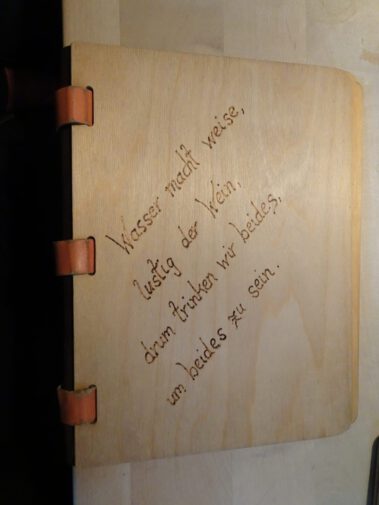 Wasser macht weise,
lustig der Wein,
drum trinken wir beides,
um beides zu sein.